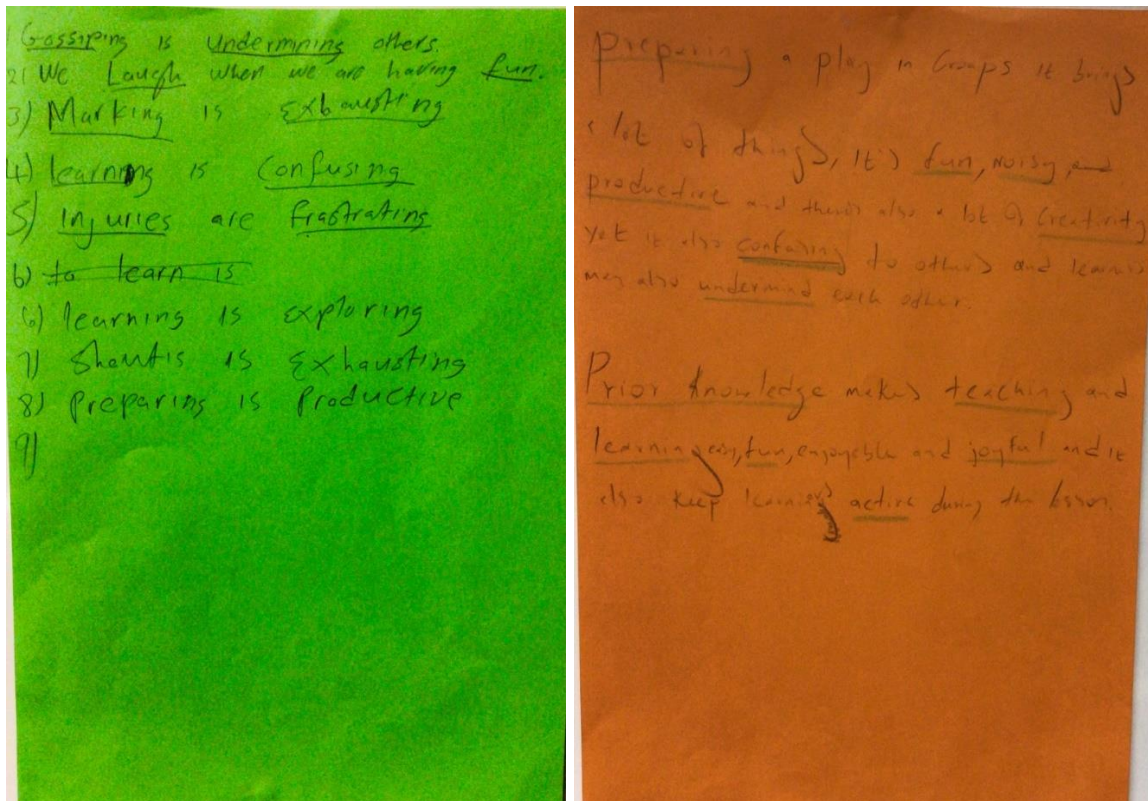 1) Gossiping is undermining others.
2) We Laugh when we are having fun.
3) Marking is Exhausting
4) learning is Confusing
5) Injuries are frastrating
6) to learn is
6) learning is exploring
7) Shoutis is Exhausting
8) preparing is Productive
9)
Preparing a play in Groups it brings
a lot of things, it's fun, noisy, and
productive and there's also a lot of Creativity
yet it also confusing to others and learners
may also undermind each other.
Prior Knowledge makes teaching and
learning easy, fun, enjoyable and joyful and it
also keep learners active during the lesson.